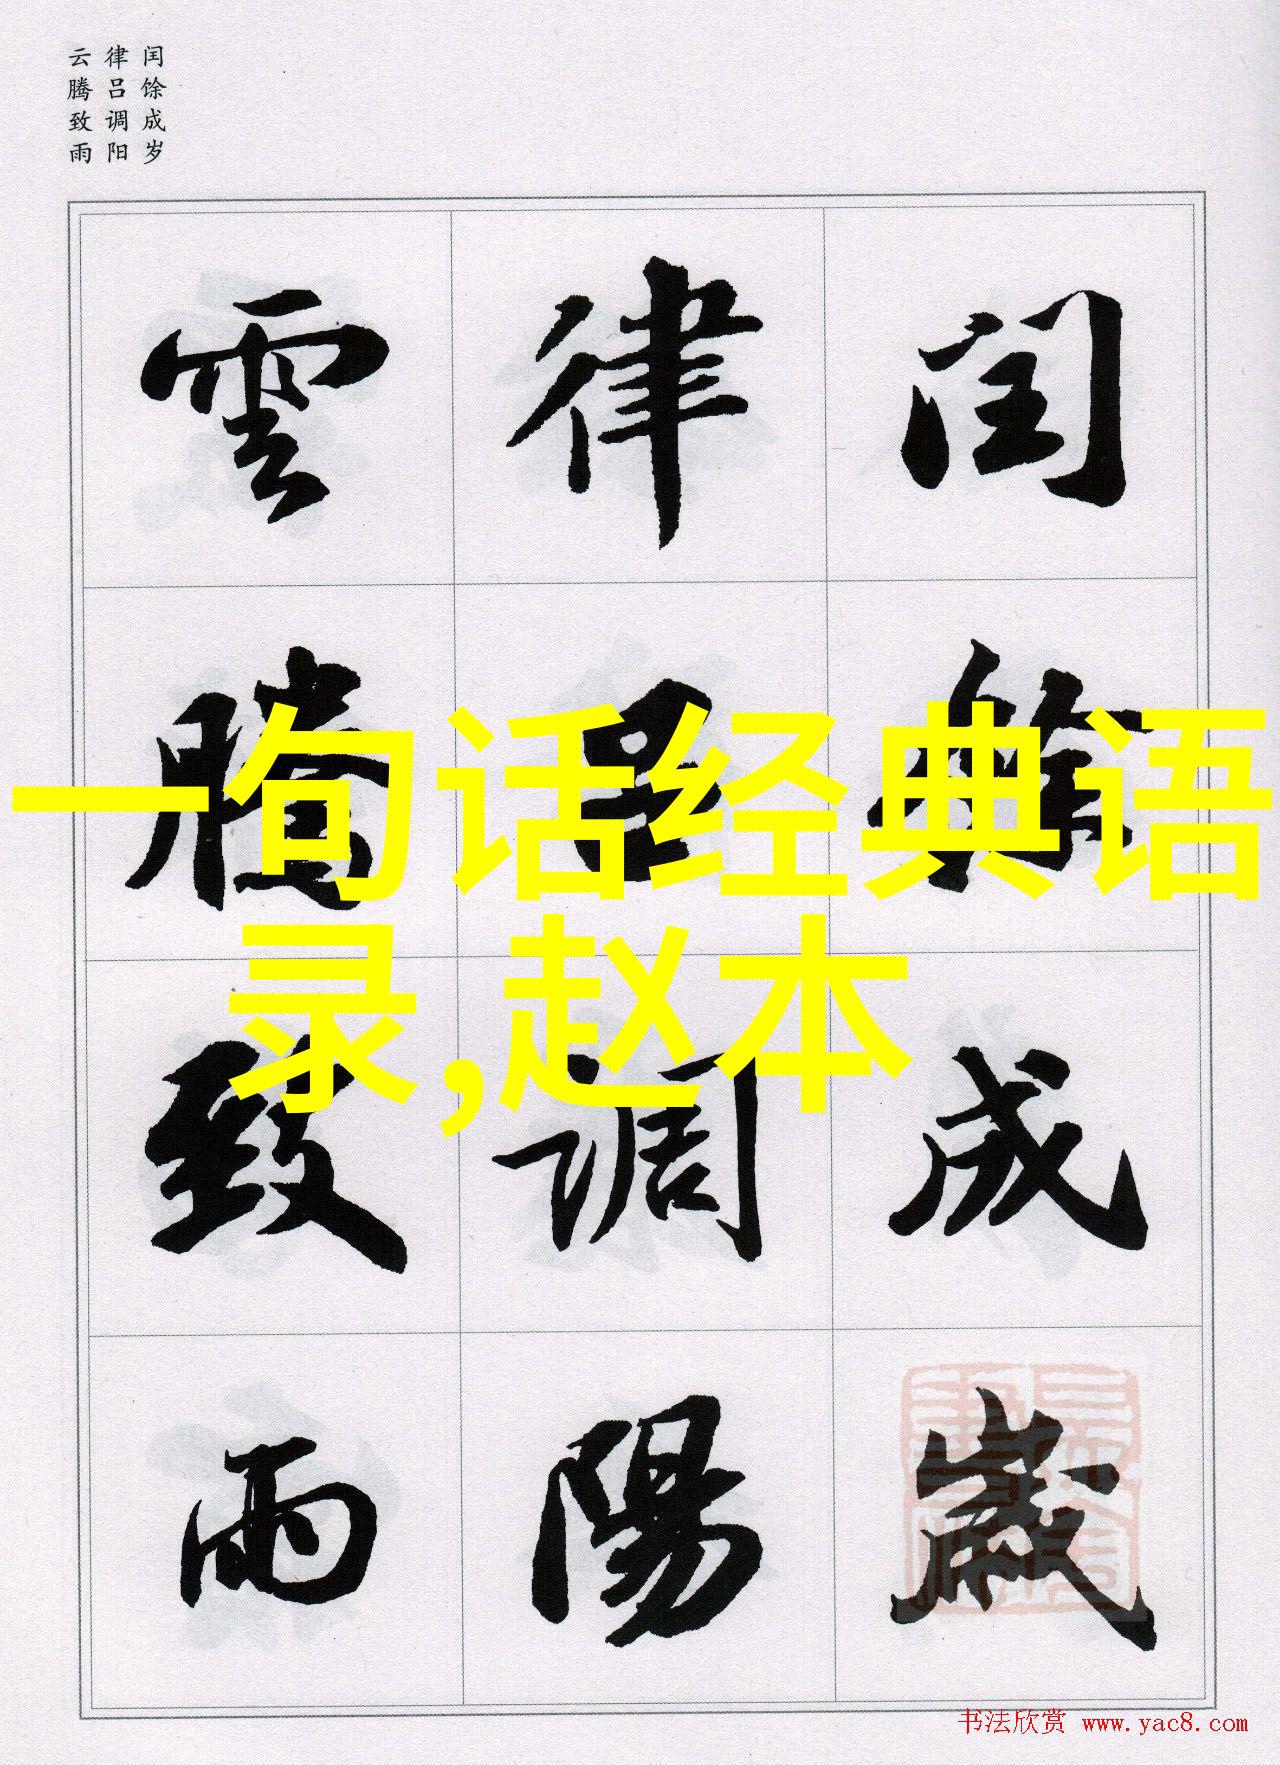 闰馀成岁
律吕调阳
云腾致雨
閏餘成歲
律吕調陽
雲騰致雨
一句话经典语
录,赵本
书法欣赏 www.yac8.com